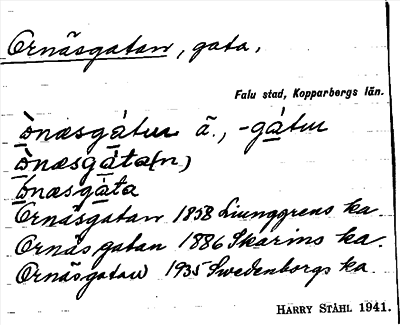 Ornäsgatan, gata,
Falu stad, Kopparbergs län.
ò̱næsgá̱tur ä., -gá̱tur
ò̱næsgá̱ta(n)
ó̱næsga̱ta
Ornäsgatan 1858 Ljunggrens ka
Ornäs gatan 1886 Skarins ka.
Ornäsgatan 1935 Swedenborgs ka.
HARRY STÅHL 1941.